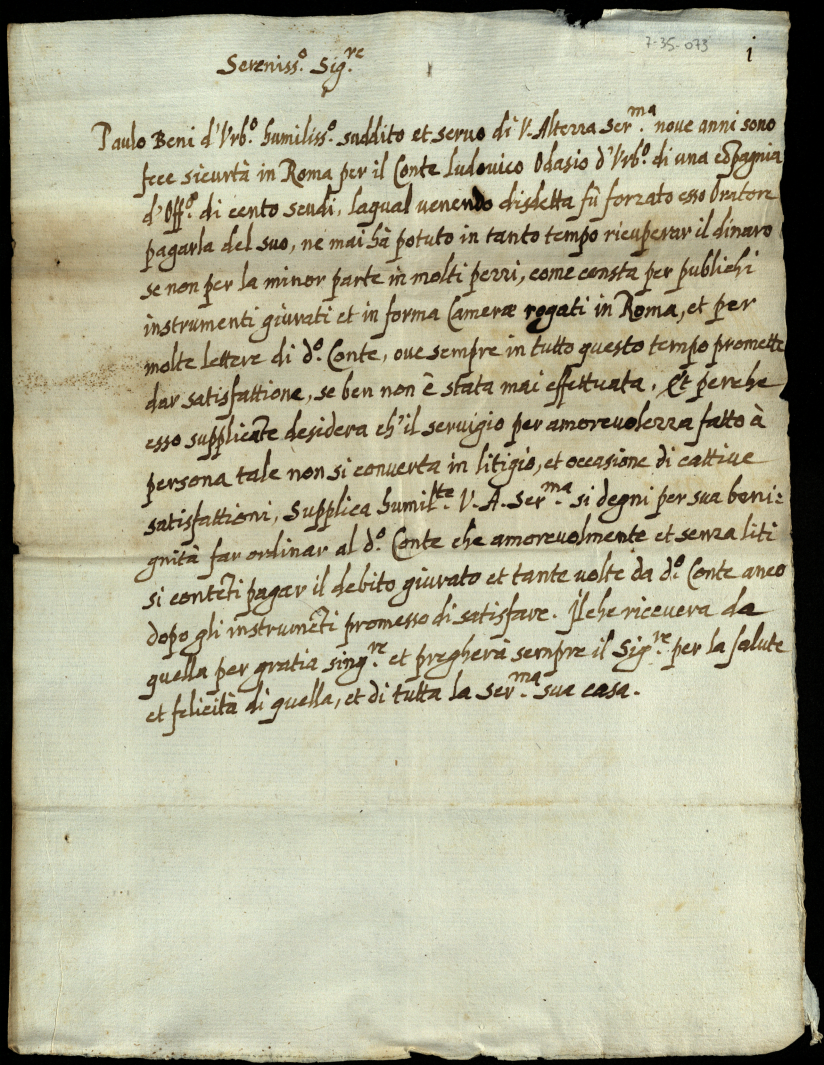 7-35-073
i
Sereniss.º Sig.re
Paulo Beni d'Vrb.º humiliss.º suddito et seruo di V. Altezza Ser.ma noue anni sono
fece sicurtà in Roma per il Conte Ludouico Odasio d'Vrb.º di una cōpagnia
d'Off.º di cento scudi, laqual uenendo disdetta fù forzato esso Oratore
pagarla del suo, ne mai hà potuto in tanto tempo ricuperar il dinaro
se non per la minor parte in molti pezzi, come consta per publichi
instrumenti giurati et in forma Cameræ rogati in Roma, et per
molte lettere di d.º Conte, oue sempre in tutto questo tempo promette
dar satisfattione, se ben non è stata mai effettuata. Et perche
esso supplicāte desidera ch'il seruigio per amoreuolezza fatto à
persona tale non si conuerta in litigio, et occasione di cattiue
satisfattioni, Supplica humil.te V. A. Ser.ma si degni per sua beni=
gnità far ordinar al d.º Conte che amoreuolmente et senza liti
si contēti pagar il debito giurato et tante uolte da d.º Conte anco
dopo gli instrumēti promesso di satisfare. Il che riceuera da
quella per gratia sing.re et pregherà sempre il Sig.re per la salute
et felicità di quella, et di tutta la Ser.ma sua casa.